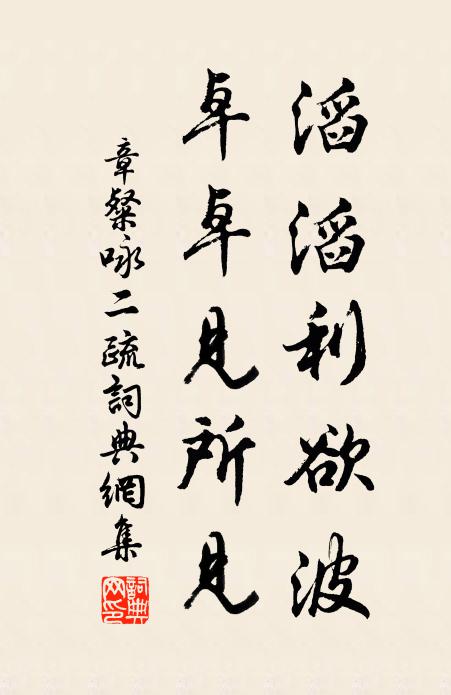 滔滔利欲波
卓卓見所見
章粲咏二疏詞典網集
詞典网印